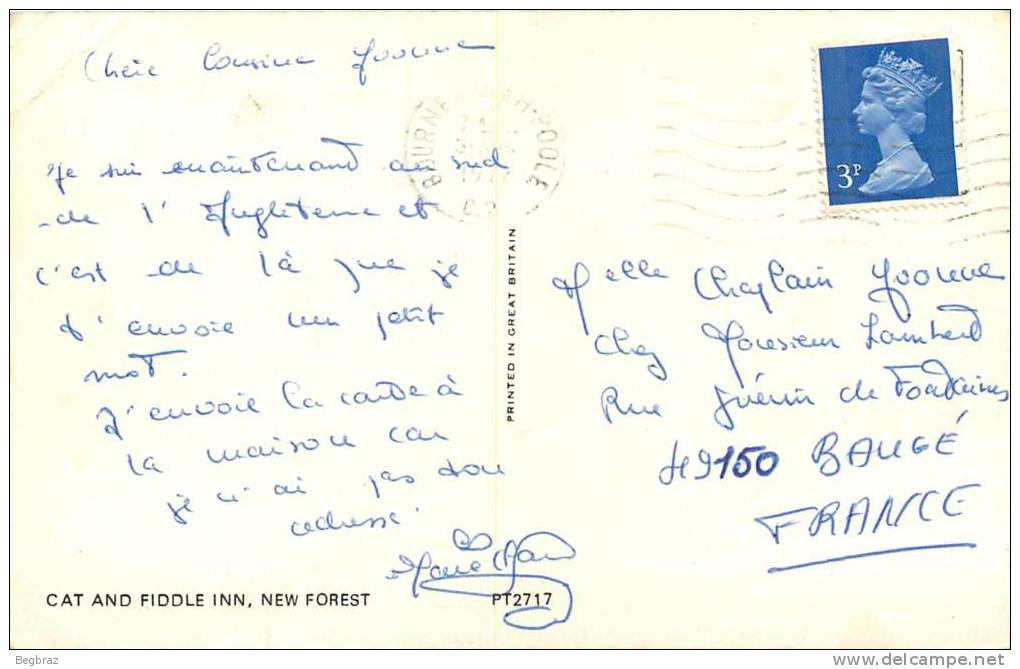 Chère Cousine Yvonne
Je suis maintenant au sud
de l'Angleterre et
c'est de là que je
t'envoie un petit
mot.
J'envoie la carte à
la maison car
je n'ai pas ton
adresse.
CAT AND FIDDLE INN, NEW FOREST
PT2717
PRINTED IN GREAT BRITAIN
BOURNEMOUTH-POOLE
3P
Melle Chaplain Yvonne
Chez Monsieur Lambert
Rue Guérin de Fontaines
49150 BAUGÉ
FRANCE
Begbraz
delcampe.net